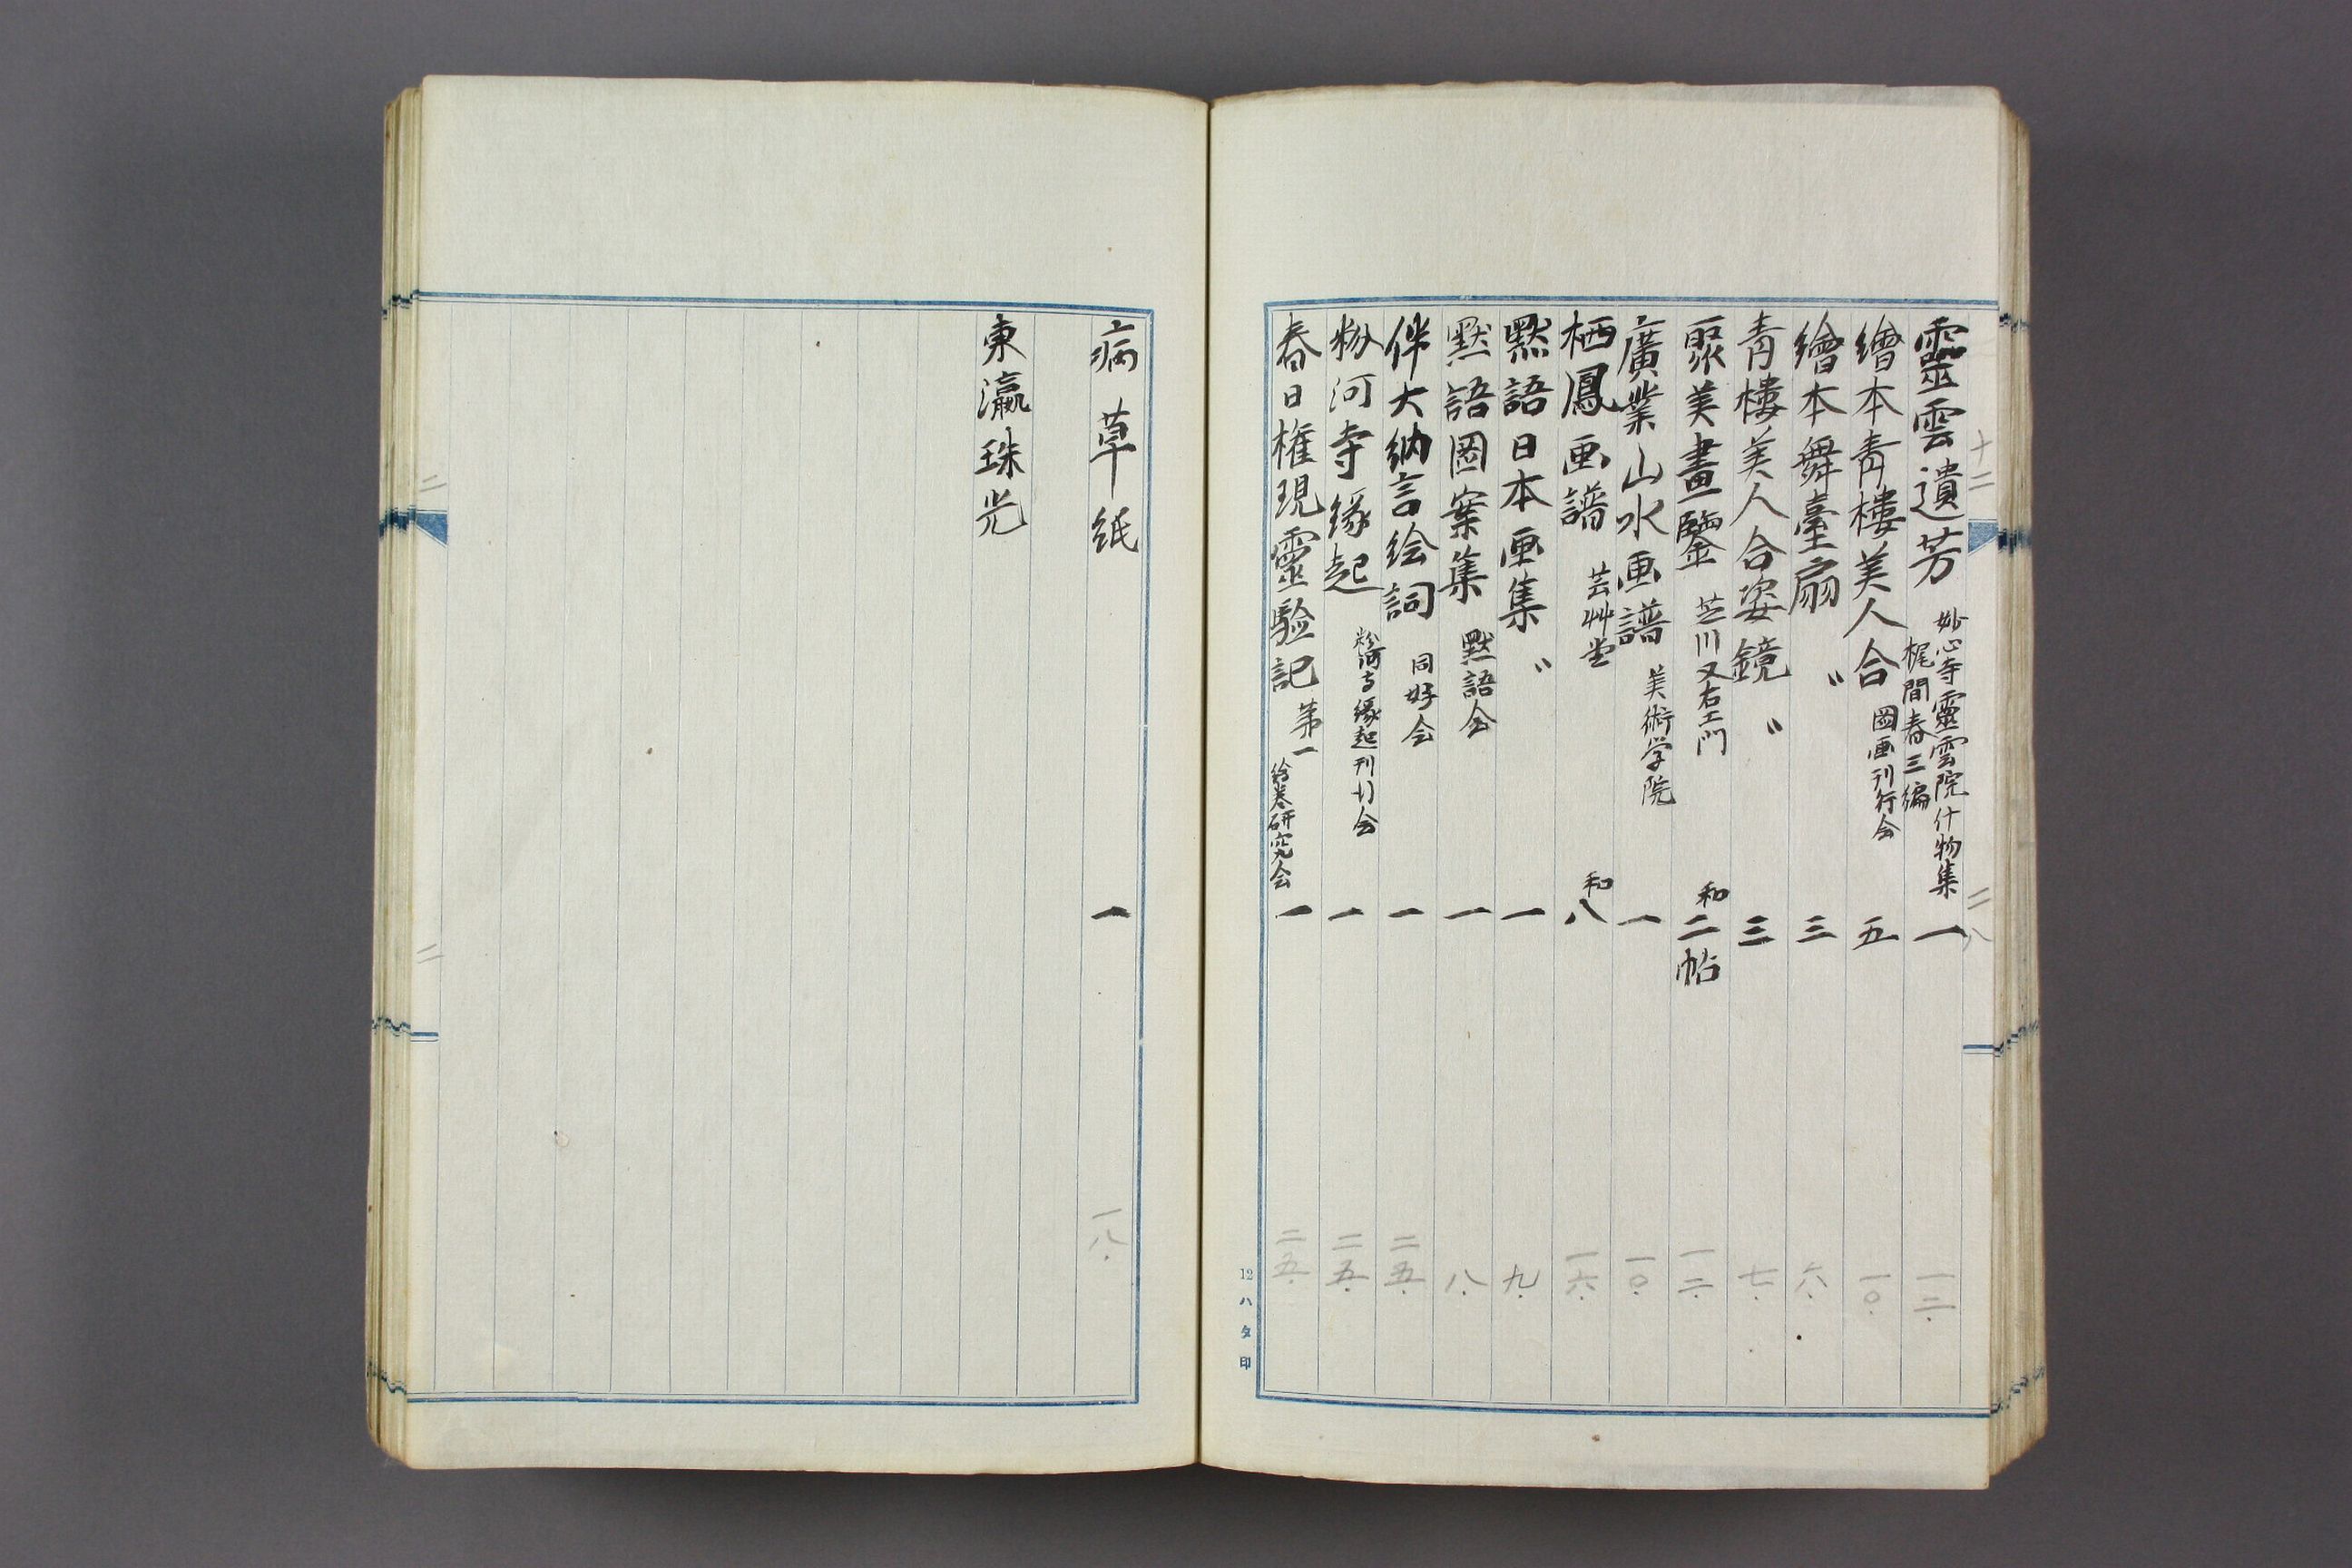 十二
二八
靈雲遺芳 妙心寺靈雲院什物集 梶間春三編 一 一三.
繪本青樓美人合 図画刊行会 五 一〇.
繪本舞臺扇 〃 三 六.
青樓美人合姿鏡 〃 三 七.
聚美畫鑒 芝川又右エ門 和二帖 一二.
廣業山水画譜 美術学院 一 一〇.
栖鳳画譜 芸艸堂 和八 一六.
黙語日本画集 〃 一 九.
黙語図案集 黙語会 一 八.
伴大納言絵詞 同好会 一 二五.
粉河寺縁起 粉河寺縁起刊行会 一 二五.
春日権現靈験記 第一 絵巻研究会 一 二五.
12 ハタ印
病草紙 一 一八.
東瀛珠光
二
二